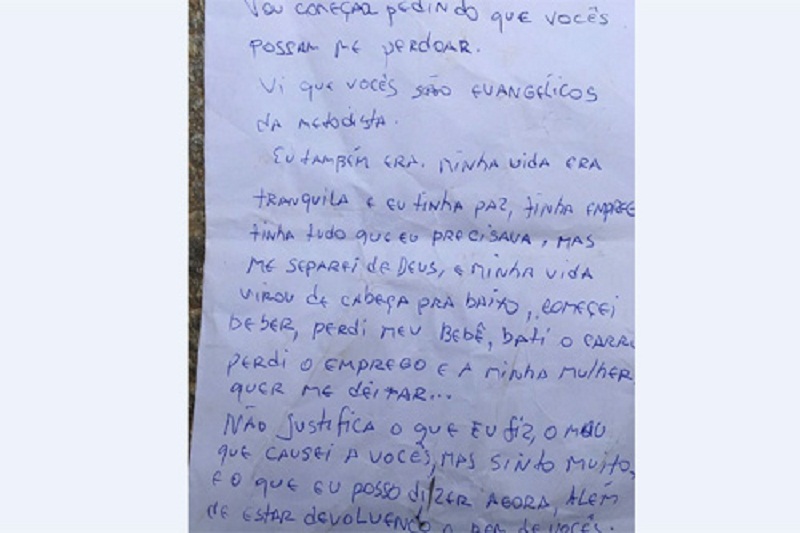 Vou começar pedindo que vocês
possam me perdoar.
Vi que vocês são evangélicos
da metodista.
Eu também era. Minha vida era
tranquila e eu tinha paz, tinha empre
tinha tudo que eu precisava, mas
me separei de Deus, e minha vida
virou de cabeça pra baixo, começei
beber, perdi meu bebê, bati o carro
perdi o emprego e a minha mulher
quer me deixar...
Não justifica o que eu fiz, o mau
que causei a vocês, mas sinto muito,
e o que eu posso dizer agora, além
de estar devolvendo o bem de vocês.